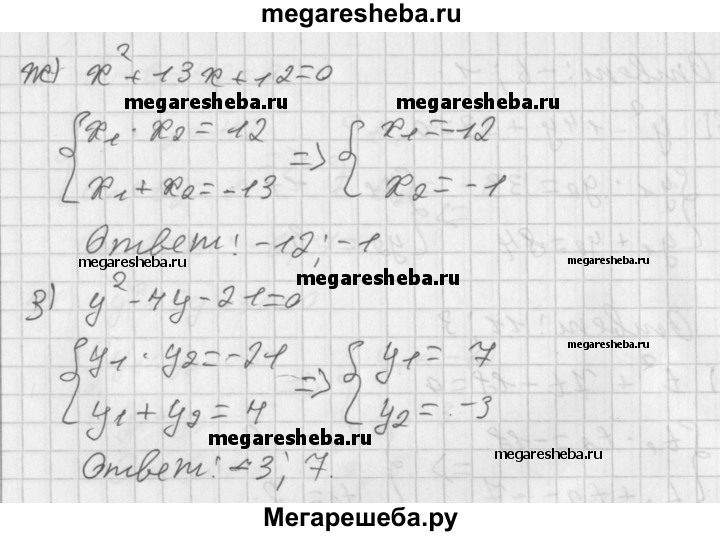 megaresheba.ru
ж) x² + 13x + 12 = 0
megaresheba.ru megaresheba.ru
{ x₁ · x₂ = 12 => { x₁ = -12
x₁ + x₂ = -13 x₂ = -1
Ответ: -12; -1
megaresheba.ru megaresheba.ru
megaresheba.ru
з) y² - 4y - 21 = 0
megaresheba.ru
{ y₁ · y₂ = -21 => { y₁ = 7
y₁ + y₂ = 4 y₂ = -3
megaresheba.ru
megaresheba.ru
Ответ: -3; 7.
Мегарешеба.ру